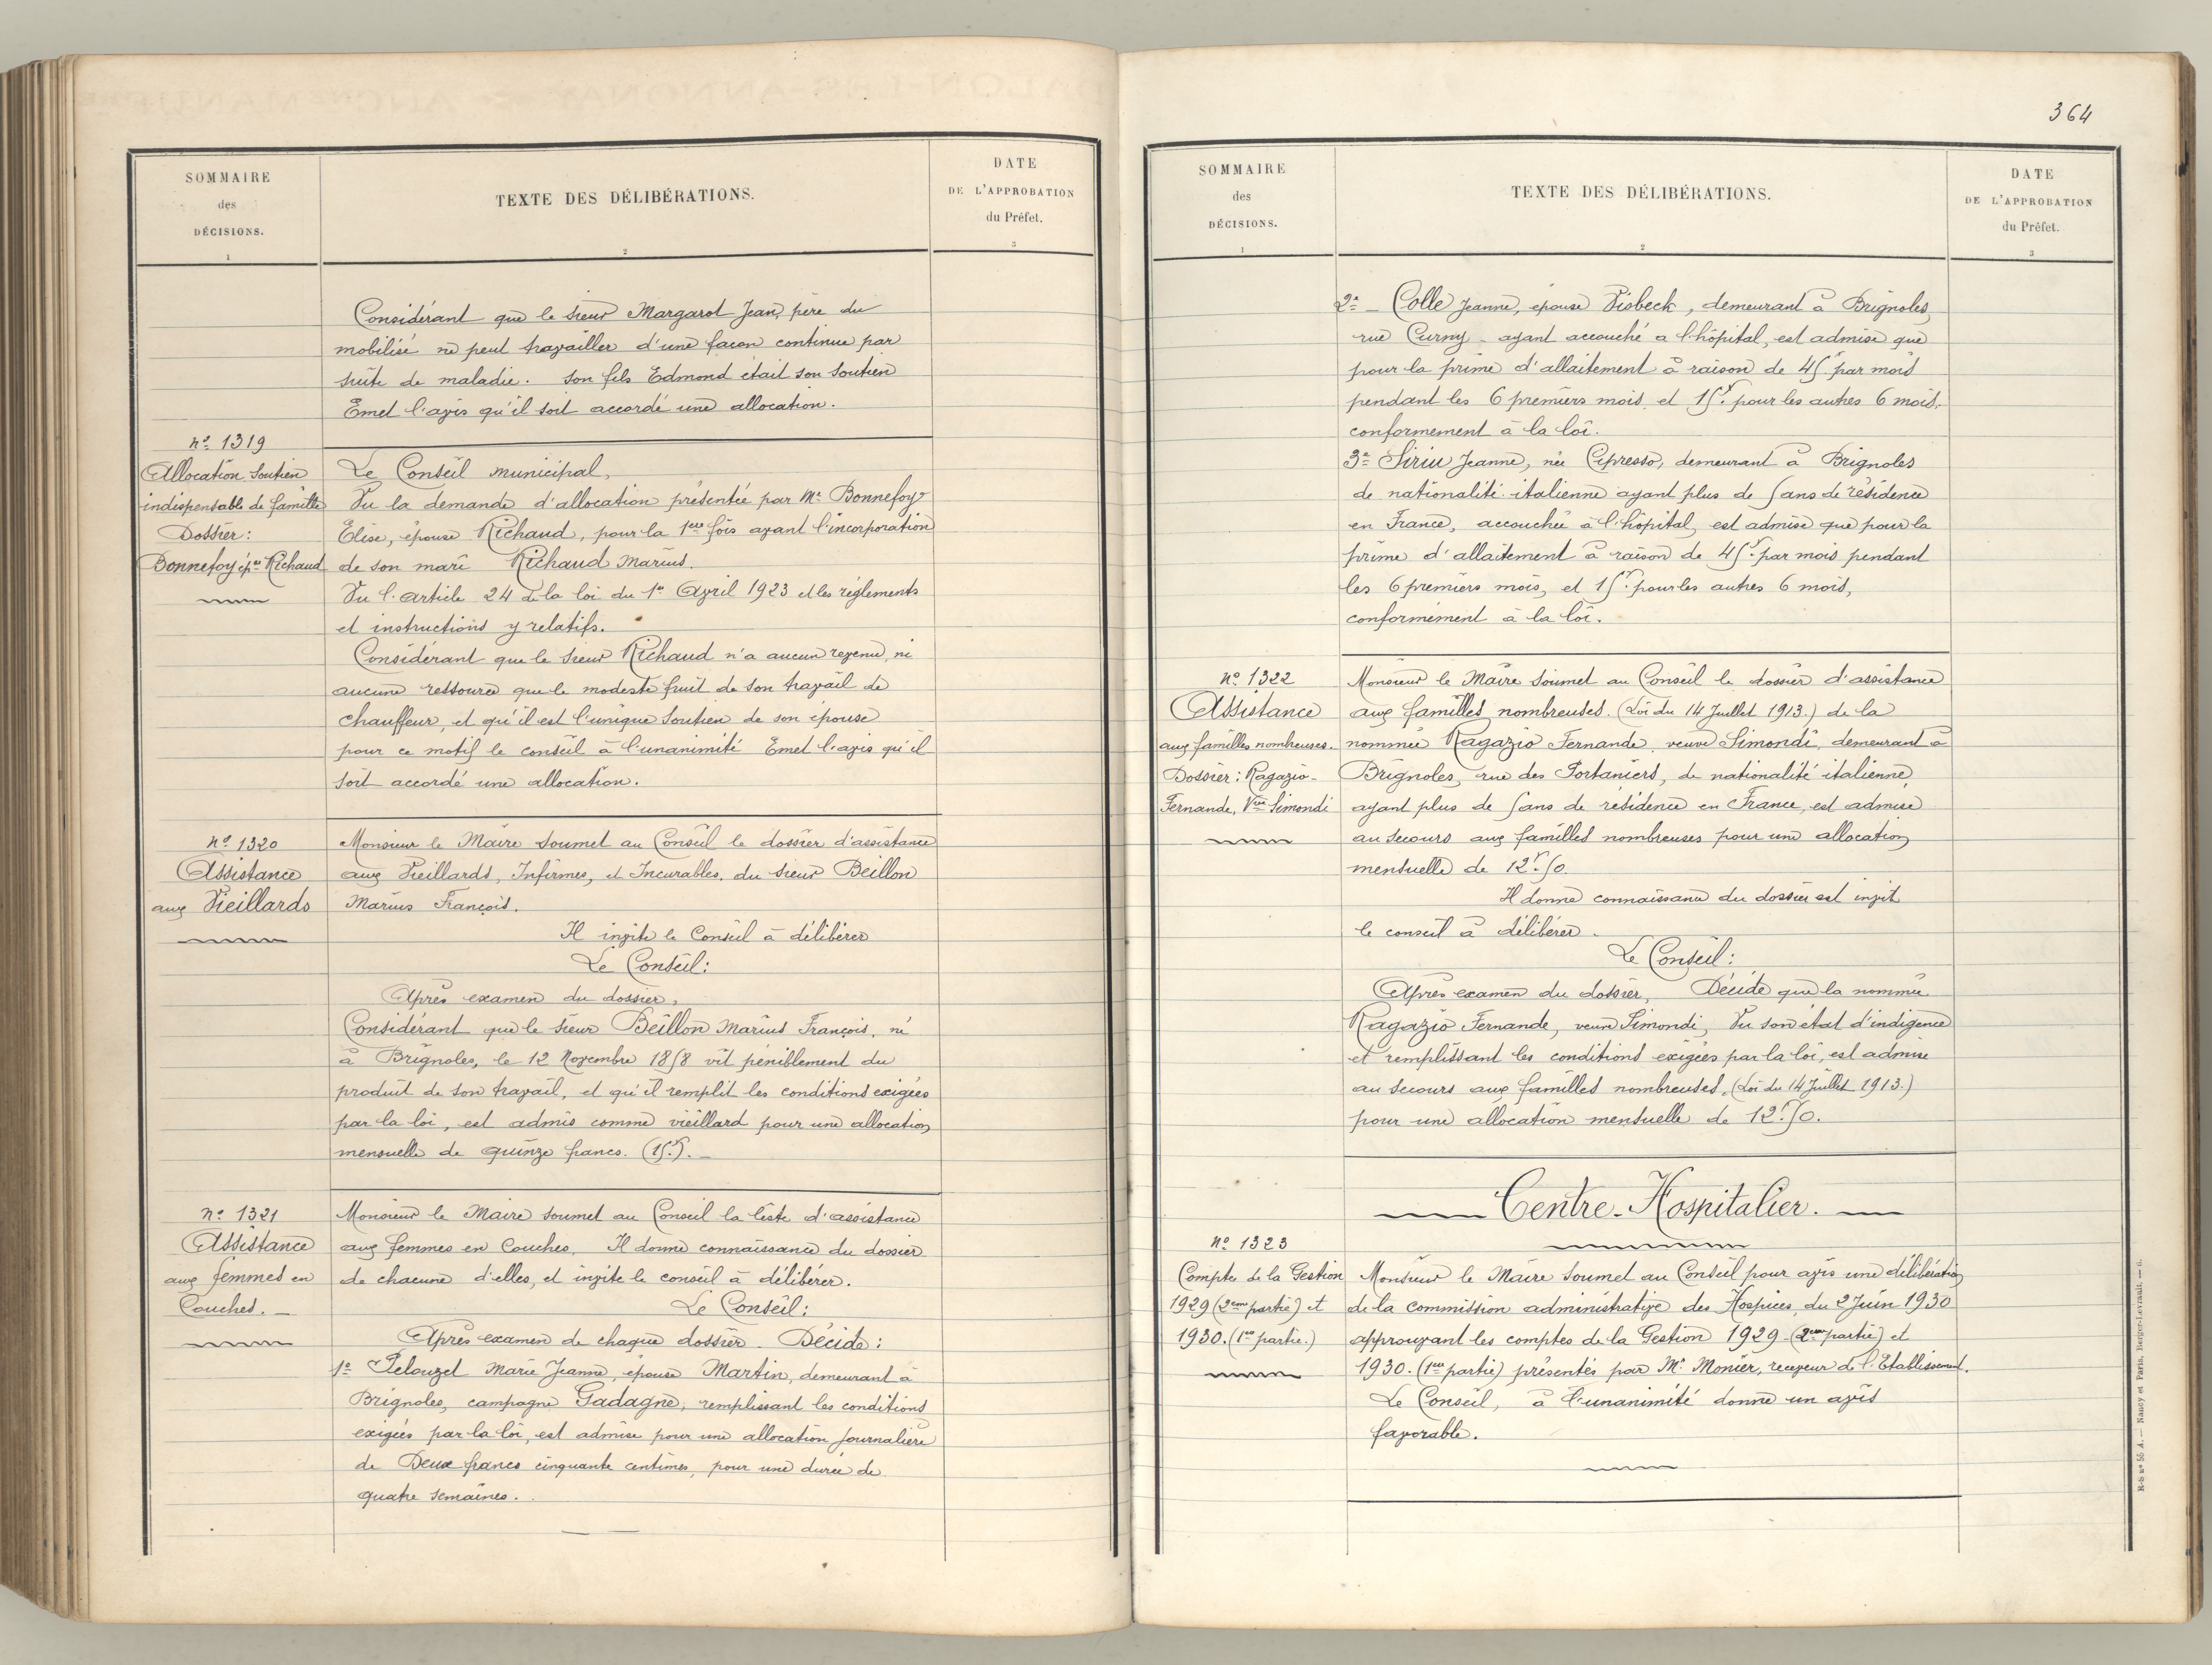 SOMMAIRE
des
DÉCISIONS.
1
TEXTE DES DÉLIBÉRATIONS.
2
DATE
DE L'APPROBATION
du Préfet.
3
Considérant que le sieur Margarot Jean, père du
mobilisé ne peut travailler d'une façon continue par
suite de maladie. Son fils Edmond était son soutien
Émet l'avis qu'il soit accordé une allocation.
n° 1319
Allocation Soutien
indispensable de famille
Dossier:
Bonnefoy ép.se Richaud
Le Conseil municipal,
Vu la demande d'allocation présentée par Me Bonnefoy
Elise, épouse Richaud, pour la 1ère fois avant l'incorporation
de son mari Richaud Marius.
Vu l'article 24 de la loi du 1er Avril 1923 et les règlements
et instructions y relatifs.
Considérant que le sieur Richaud n'a aucun revenu, ni
aucune ressource que le modeste fruit de son travail de
chauffeur, et qu'il est l'unique soutien de son épouse
pour ce motif le conseil à l'unanimité Émet l'avis qu'il
soit accordé une allocation.
n° 1320
Assistance
aux Vieillards
Monsieur le Maire soumet au Conseil le dossier d'assistance
aux Vieillards, Infirmes, et Incurables, du sieur Beillon
Marius François.
Il invite le Conseil à délibérer
Le Conseil:
Après examen du dossier,
Considérant que le sieur Beillon Marius François, né
à Brignoles, le 12 Novembre 1858 vit péniblement du
produit de son travail, et qu'il remplit les conditions exigées
par la loi, est admis comme vieillard pour une allocation
mensuelle de quinze francs. (15f.).
n° 1321
Assistance
aux femmes en
Couches.
Monsieur le Maire soumet au Conseil la liste d'assistance
aux femmes en Couches. Il donne connaissance du dossier
de chacune d'elles, et invite le conseil à délibérer.
Le Conseil:
Après examen de chaque dossier. Décide:
1° Pelouzet Marie Jeanne, épouse Martin, demeurant à
Brignoles, campagne Gadagne, remplissant les conditions
exigées par la loi, est admise pour une allocation journalière
de Deux francs cinquante centimes, pour une durée de
quatre semaines.
364
SOMMAIRE
des
DÉCISIONS.
1
TEXTE DES DÉLIBÉRATIONS.
2
DATE
DE L'APPROBATION
du Préfet.
3
2° - Colle Jeanne, épouse Visbeck, demeurant à Brignoles,
rue Curny - ayant accouché a l'hôpital, est admise que
pour la prime d'allaitement à raison de 45f. par mois
pendant les 6 premiers mois, et 15f. pour les autres 6 mois,
conformement à la loi.
3° Siriu Jeanne, née Cipresso, demeurant à Brignoles
de nationalité italienne ayant plus de 5 ans de résidence
en France, accouchée à l'hôpital, est admise que pour la
prime d'allaitement à raison de 45f. par mois pendant
les 6 premiers mois, et 15f. pour les autres 6 mois,
conformément à la loi.
n° 1322
Assistance
aux familles nombreuses.
Dossier: Ragazio-
Fernande, Vve Simondi
Monsieur le Maire soumet au Conseil le dossier d'assistance
aux familles nombreuses. (Loi du 14 Juillet 1913.) de la
nommée Ragazio Fernande, veuve Simondi, demeurant à
Brignoles, rue des Portaniers, de nationalité italienne,
ayant plus de 5 ans de résidence en France, est admise
au secours aux familles nombreuses pour une allocation
mensuelle de 12f.50.
Il donne connaissance du dossier est invit
le conseil à délibérer.
Le Conseil:
Après examen du dossier, Décide que la nommée
Ragazio Fernande, veuve Simondi, Vu son état d'indigence
et remplissant les conditions exigées par la loi, est admise
au secours aux familles nombreuses, (Loi du 14 Juillet 1913.)
pour une allocation mensuelle de 12f.50.
Centre-Hospitalier.
n° 1323
Comptes de la Gestion
1929 (2ème partie) et
1930. (1ère partie.)
Monsieur le Maire soumet au Conseil pour avis une délibération
de la commission administrative des Hospices, du 2 Juin 1930
approuvant les comptes de la Gestion 1929 (2ème partie) et
1930. (1ère partie) présentés par Mr. Monier, receveur de l'Etablissement.
Le Conseil, à l'unanimité donne un avis
favorable.
R-S N° 55 A. — Nancy et Paris, Berger-Levrault. — 6.